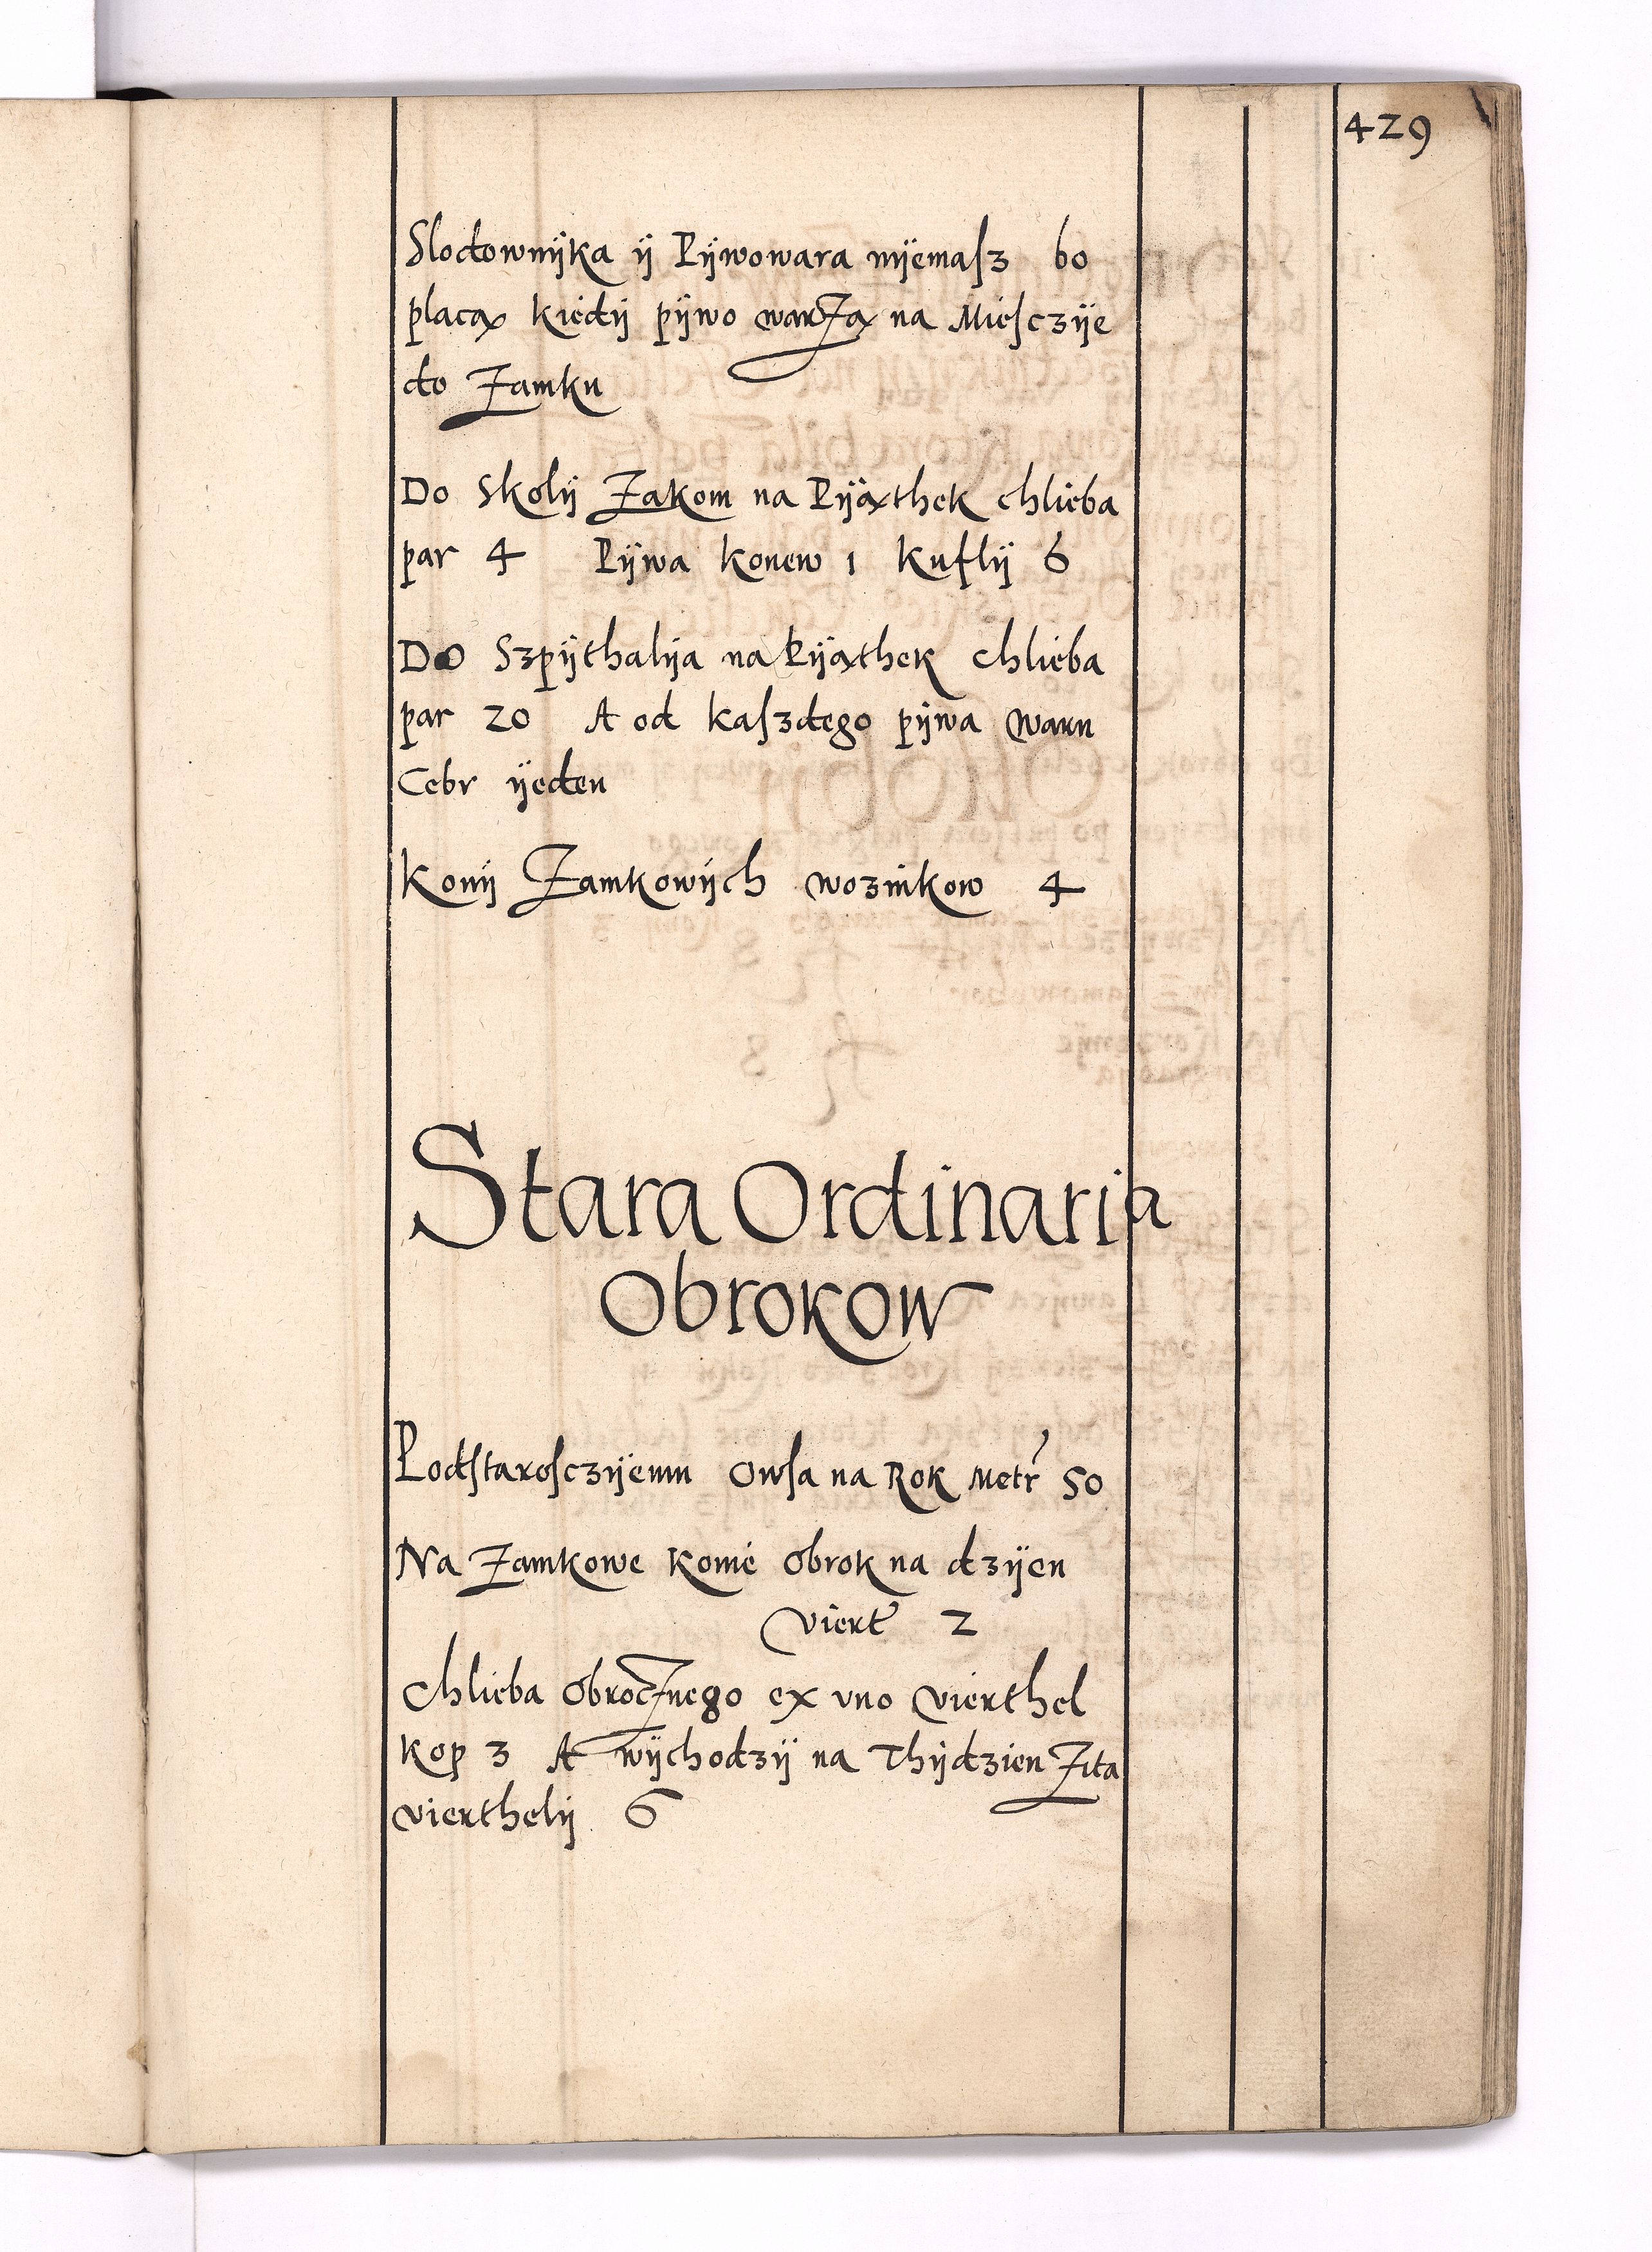 429
Slodownÿka ÿ Pÿwowara nÿemaſz bo
placą kiedÿ pÿwo warZą na Mieſczÿe
do Zamku
Do Skolÿ Zakom na Pÿąthek chlieba
par 4 Pÿwa konew 1 kuflÿ 6
Do Szpÿthalÿa na Pÿąthek chlieba
par 20 A od kaſzdego pÿwa waru
Cebr ÿeden
Konÿ Zamkowÿch woznikow 4
Stara Ordinaria
Obrokow
Podſtaroſczÿemu Owſa na Rok Metr 50
Na Zamkowe konie Obrok na dzÿen
Viert 2
Chlieba ObrocZnego ex vno vierthel
kop 3 A wÿchodzÿ na Thÿdzien Zita
vierthelÿ 6